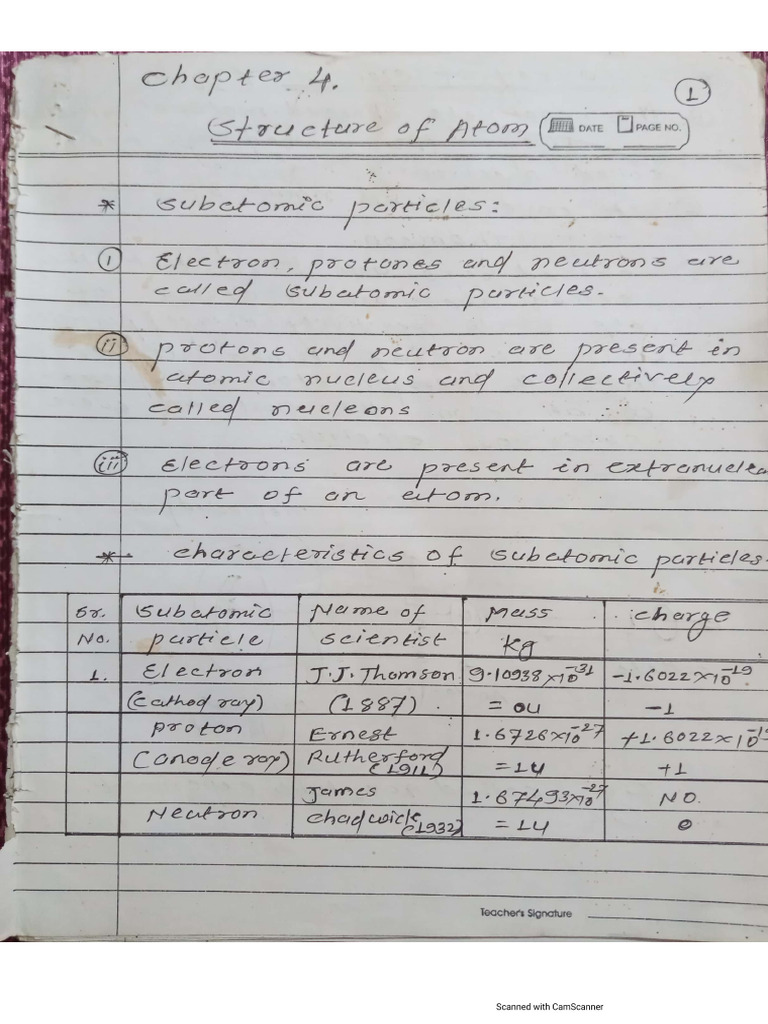 Chapter 4.
1
Structure of Atom
DATE PAGE NO.
* Subatomic particles:
i Electron, protones and neutrons are
called subatomic particles.
ii protons and neutron are present in
atomic nucleus and collectively
called nucleons
iii Electrons are present in extranuclea
part of an atom.
* characteristics of subatomic particles.
Sr. Subatomic Name of Mass charge
No. particle scientist Kg
1. Electron J.J. Thomson 9.10938×10⁻³¹ -1.6022×10⁻¹⁹
(cathod ray) (1887). = 0u -1
proton Ernest 1.6726×10⁻²⁷ +1.6022×10⁻¹
(anode ray) Rutherford (1911) = 1u +1
James 1.67493×10⁻²⁷ NO.
Neutron chadwick (1932) = 1u 0
Teacher's Signature
Scanned with CamScanner